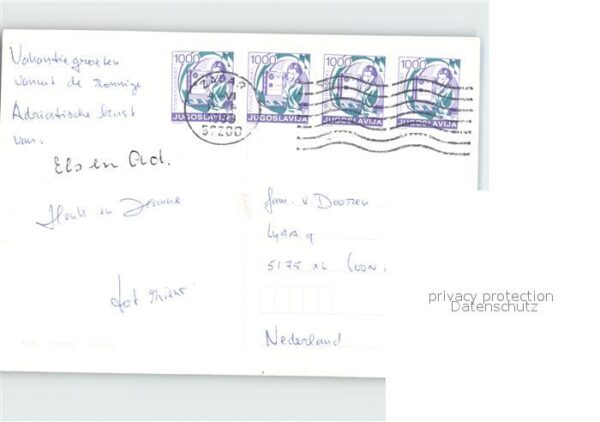 Vakantiegroeten
vanuit de zonnige
Adriatische kust
van:
Els en Ad.
Henk en Jeanne
1000
1000
1000
1000
JUGOSLAVIJA
JUGOSLAVIJA
JUGOSLAVIJA
JUGOSLAVIJA
ZADAR
Fam. v. Dooren
Lyra 9
5175 XL Loon
Nederland
privacy protection
Datenschutz